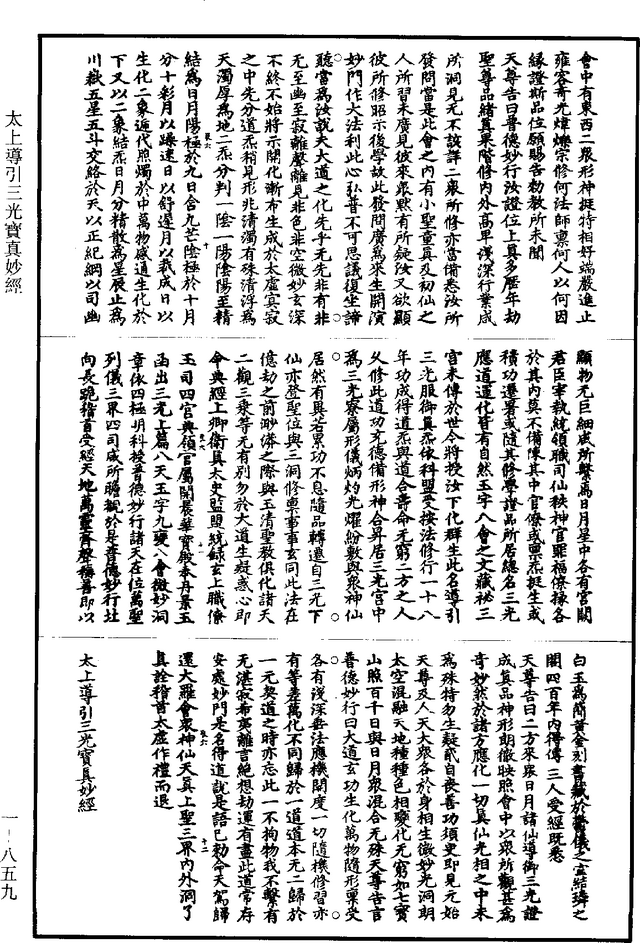 太上導引三光寶真妙經
會中有東西二眾形神挺特相好端嚴進止
雍容奇光煒爍宗修何法師稟何人以何因
緣證斯品位願賜告勑教所未聞
天尊告曰普德妙行汝證位上真多歷年劫
聖尊品緒真果階修內外高卑淺深行業咸
所洞見无不該譯二眾所修亦當備悉汝所
發問當是此會之內有小聖童真及初仙之
人所習未廣見彼來眾默有所疑汝又欲顯
彼所修昭示後學故此發問廣為來生開演
妙門作大法利此心弘普不可思議復坐諦
聽當為汝說夫大道之化先乎无先非有非
无至幽至寂離聲離見非色非空微妙玄深
不終不始將示開化漸布生成於太虛寞寂
之中先分道炁稍見形兆清濁有殊清浮為
天濁厚為地二炁分判一陰一陽陰陽至精
結為日月陽極於九日合九芒陰極於十月
分十彩月以躁速日以舒遲月以裁成日以
生化二象遞代照燭於中萬物感道生化於
下又以二象結炁日月分精散為星辰止為
川嶽五星五斗交絡於天以正紀綱以司幽
顯物无巨細咸所繫焉日月星中各有宮闕
君臣宰執統領職司仙秩神官罪福僚掾各
於其內莫不備陳其中官僚或稟炁挺生或
積功遷署或隨其修學證品所居總名三光
應道運化皆有自然玉字八會之文藏祕三
宮未傳於世今將授汝下化群生此名導引
三光服御真炁依科盟受按法修行一十八
年功成得道炁與道合壽命无窮二方之人
久修此道功充德備形神合昇居三光宮中
為三光寮屬形儀炳灼光耀紛敷與眾神仙
居然有異若累功不息隨品轉遷自三光下
仙亦登聖位與三洞修稟事事玄同此法在
億劫之前眇漭之際與玉清聖教俱化諸天
二觀三乘等无有別勿於大道生疑惑心即
命典經上卿衛真太史監盟統録玄上職僚
玉司四官典領官屬開晨華寶殿奉丹景玉
函出三光上篇八天玉字九靈八會微妙洞
章依四極明科授普德妙行諸天在位萬聖
列儀三界四司咸所瞻觀於是普德妙行社
向長跪稽首受經天地萬靈齊聲稱善即以
白玉為簡黃金刻書藏於鬱儀之宮結璘之
闕四百年內得傳三人受經既悉
天尊告曰二方來眾日月諸仙導御三光證
成真品神形朗徹映照會中以眾所觀甚為
奇妙然於諸方應化一切真仙光相之中未
為殊特勿生疑貳自喪善功須臾即見元始
天尊及人天大眾各於身相生微妙光洞明
太空混融天地種種色相變化无窮如七寶
山照百千日與日月眾混合无殊天尊告言
普德妙行曰大道玄功生化萬物隨形稟受
各有淺深垂法應機開度一切隨機修習亦
有等差萬化不同歸於一道道本无二歸於
一元契道之時亦忘此一不拘物我不繫有
无湛寂希夷離言絕想劫運有盡此道常存
安處妙門是名得道說是語已勑命天駕歸
還大羅會眾神仙天真上聖三界內外洞了
真詮稽首太虛作禮而退
太上導引三光寶真妙經
一-八五九